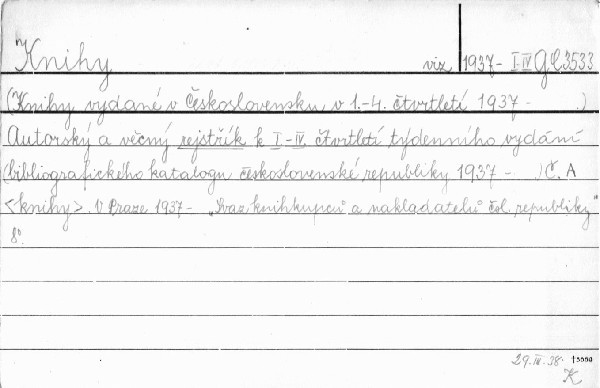 Knihy viz 1937- I-IV Gl 3533
(Knihy vydané v Československu, v 1.-4. čtvrtletí 1937 - )
Autorský a věcný rejstřík k I-IV. čtvrtletí týdenního vydání
(bibliografického katalogu československé republiky 1937 - ) Č. A
<knihy>. V Praze 1937 - "Svaz knihkupců a nakladatelů čsl. republiky"
8°.
29. III. 38.
K